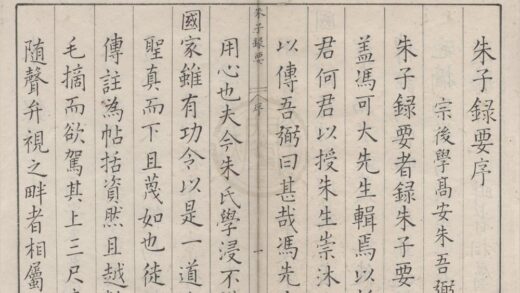 朱子録要序
宗後學髙安朱吾弼
朱子録要者録朱子要
盖馮可大先生輯焉以
君何君以授朱生崇沐
以傳吾弼曰甚哉馮先
用心也夫今朱氏學浸不
朱子録要
序
一
國家雖有功令以是一道
聖真而下且蔑如也徒
傳註為帖括資然且越
毛摘而欲駕其上三尺
随聲弁視之畔者相屬